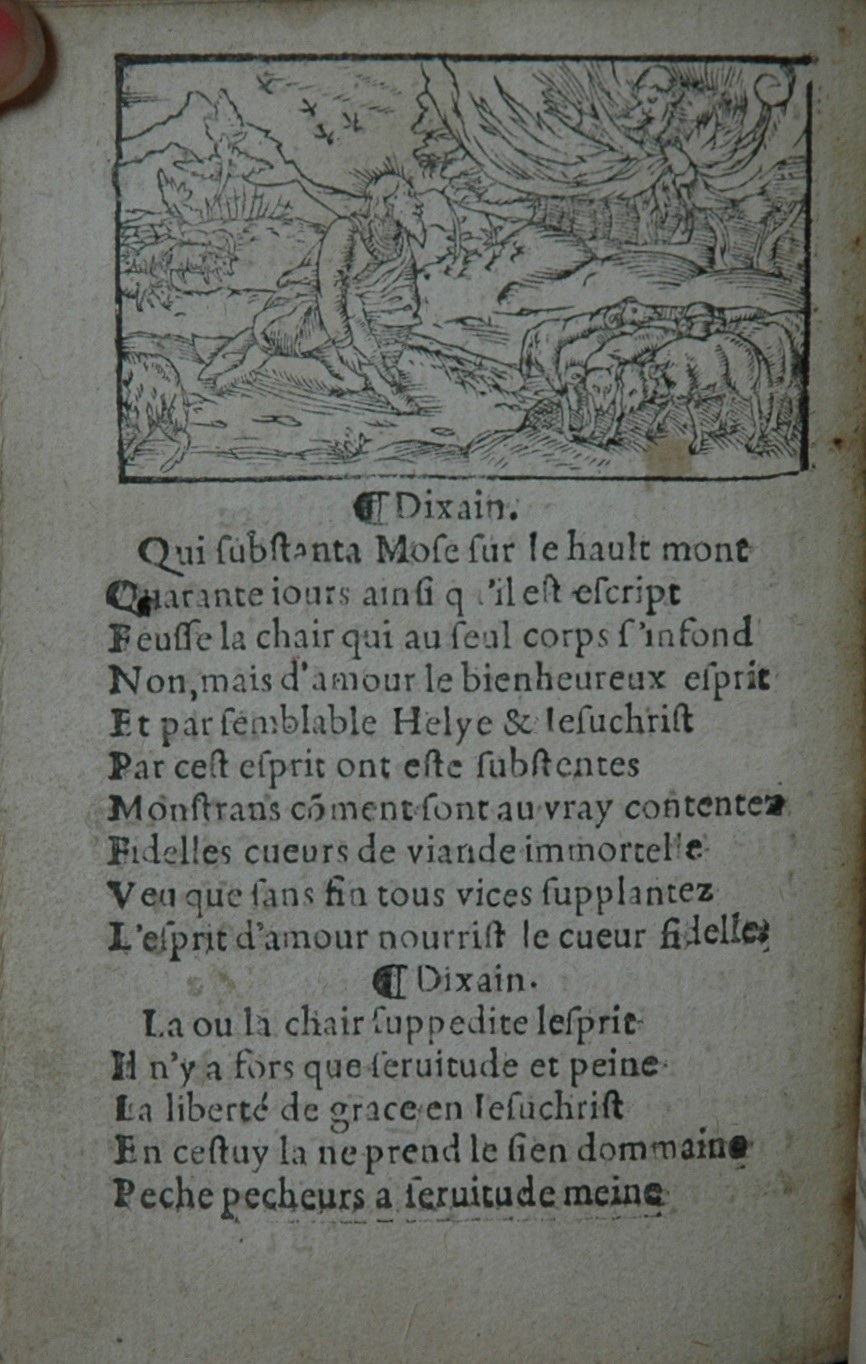 ¶ Dixain.
Qui ſubſtanta Moſe ſur le hault mont
Quarante iours ainſi q 'il eſt eſcript
Feuſſe la chair qui au ſeul corps ſ'infond
Non, mais d'amour le bienheureux eſprit
Et par ſemblable Helye & Ieſuchriſt
Par ceſt eſprit ont eſte ſubſtentes
Monſtrans cōment ſont au vray contentez
Fidelles cueurs de viande immortelle
Veu que ſans fin tous vices ſupplantez
L'eſprit d'amour nourriſt le cueur fidelle
¶ Dixain.
La ou la chair ſuppedite leſprit
Il n'y a fors que ſeruitude et peine
La liberté de grace en Ieſuchriſt
En ceſtuy la ne prend le ſien dommaine
Peche pecheurs a ſeruitude meine